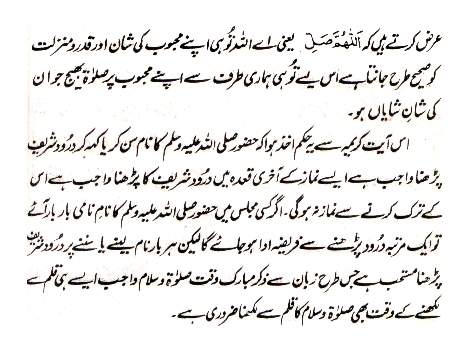 عرض کرتے ہیں کہ اَللّٰھُمَّ صَلِّ یعنی اے اللہ تُو ہی اپنے محبوب کی شان اور قدر و منزلت
کو صحیح طرح جانتا ہے اس لیے تُو ہی ہماری طرف سے اپنے محبوب پر صلوٰۃ بھیج جو ان
کی شانِ شایاں ہو۔
اس آیت کریمہ سے یہ حکم اخذ ہوا کہ حضور صلی اللہ علیہ وسلم کا نام سن کر یا کہہ کر درود شریف
پڑھنا واجب ہے ایسے نماز کے آخری قعدہ میں درود شریف کا پڑھنا واجب ہے اس
کے ترک کرنے سے نماز نہ ہوگی۔ اگر کسی مجلس میں حضور صلی اللہ علیہ وسلم کا نامِ نامی بار بار آئے
تو ایک مرتبہ درود پڑھنے سے فریضہ ادا ہو جائے گا لیکن ہر بار نام لینے یا سننے پر درود شریف
پڑھنا مستحب ہے جس طرح زبان سے ذکر مبارک وقت صلوٰۃ و سلام واجب ایسے ہی قلم سے
لکھنے کے وقت بھی صلوٰۃ و سلام کا قلم سے لکھنا ضروری ہے۔